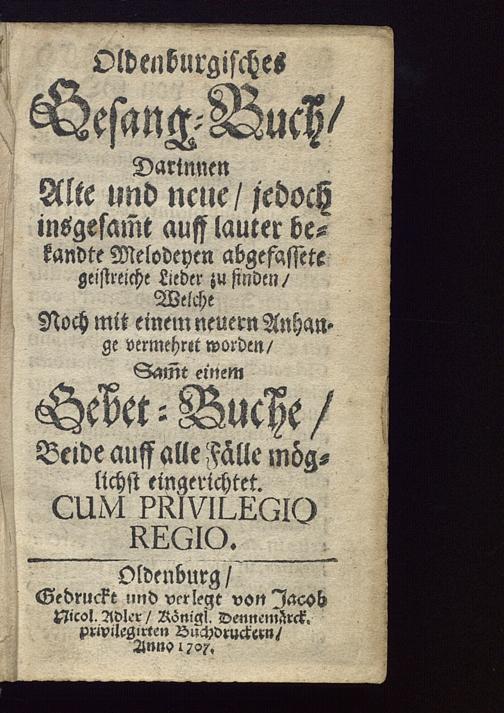 Oldenburgisches
Gesang-Buch/
Darinnen
Alte und neue/ jedoch
insgesam̃t auff lauter be-
kandte Melodeyen abgefassete
geistreiche Lieder zu finden/
Welche
Noch mit einem neuern Anhan-
ge vermehret worden/
Sam̃t einem
Gebet-Buche/
Beide auff alle Fälle mög-
lichst eingerichtet.
CUM PRIVILEGIO
REGIO.
Oldenburg/
Gedruckt und verlegt von Jacob
Nicol. Adler/ Königl. Dennemärck.
privilegirten Buchdruckern/
Anno 1707.